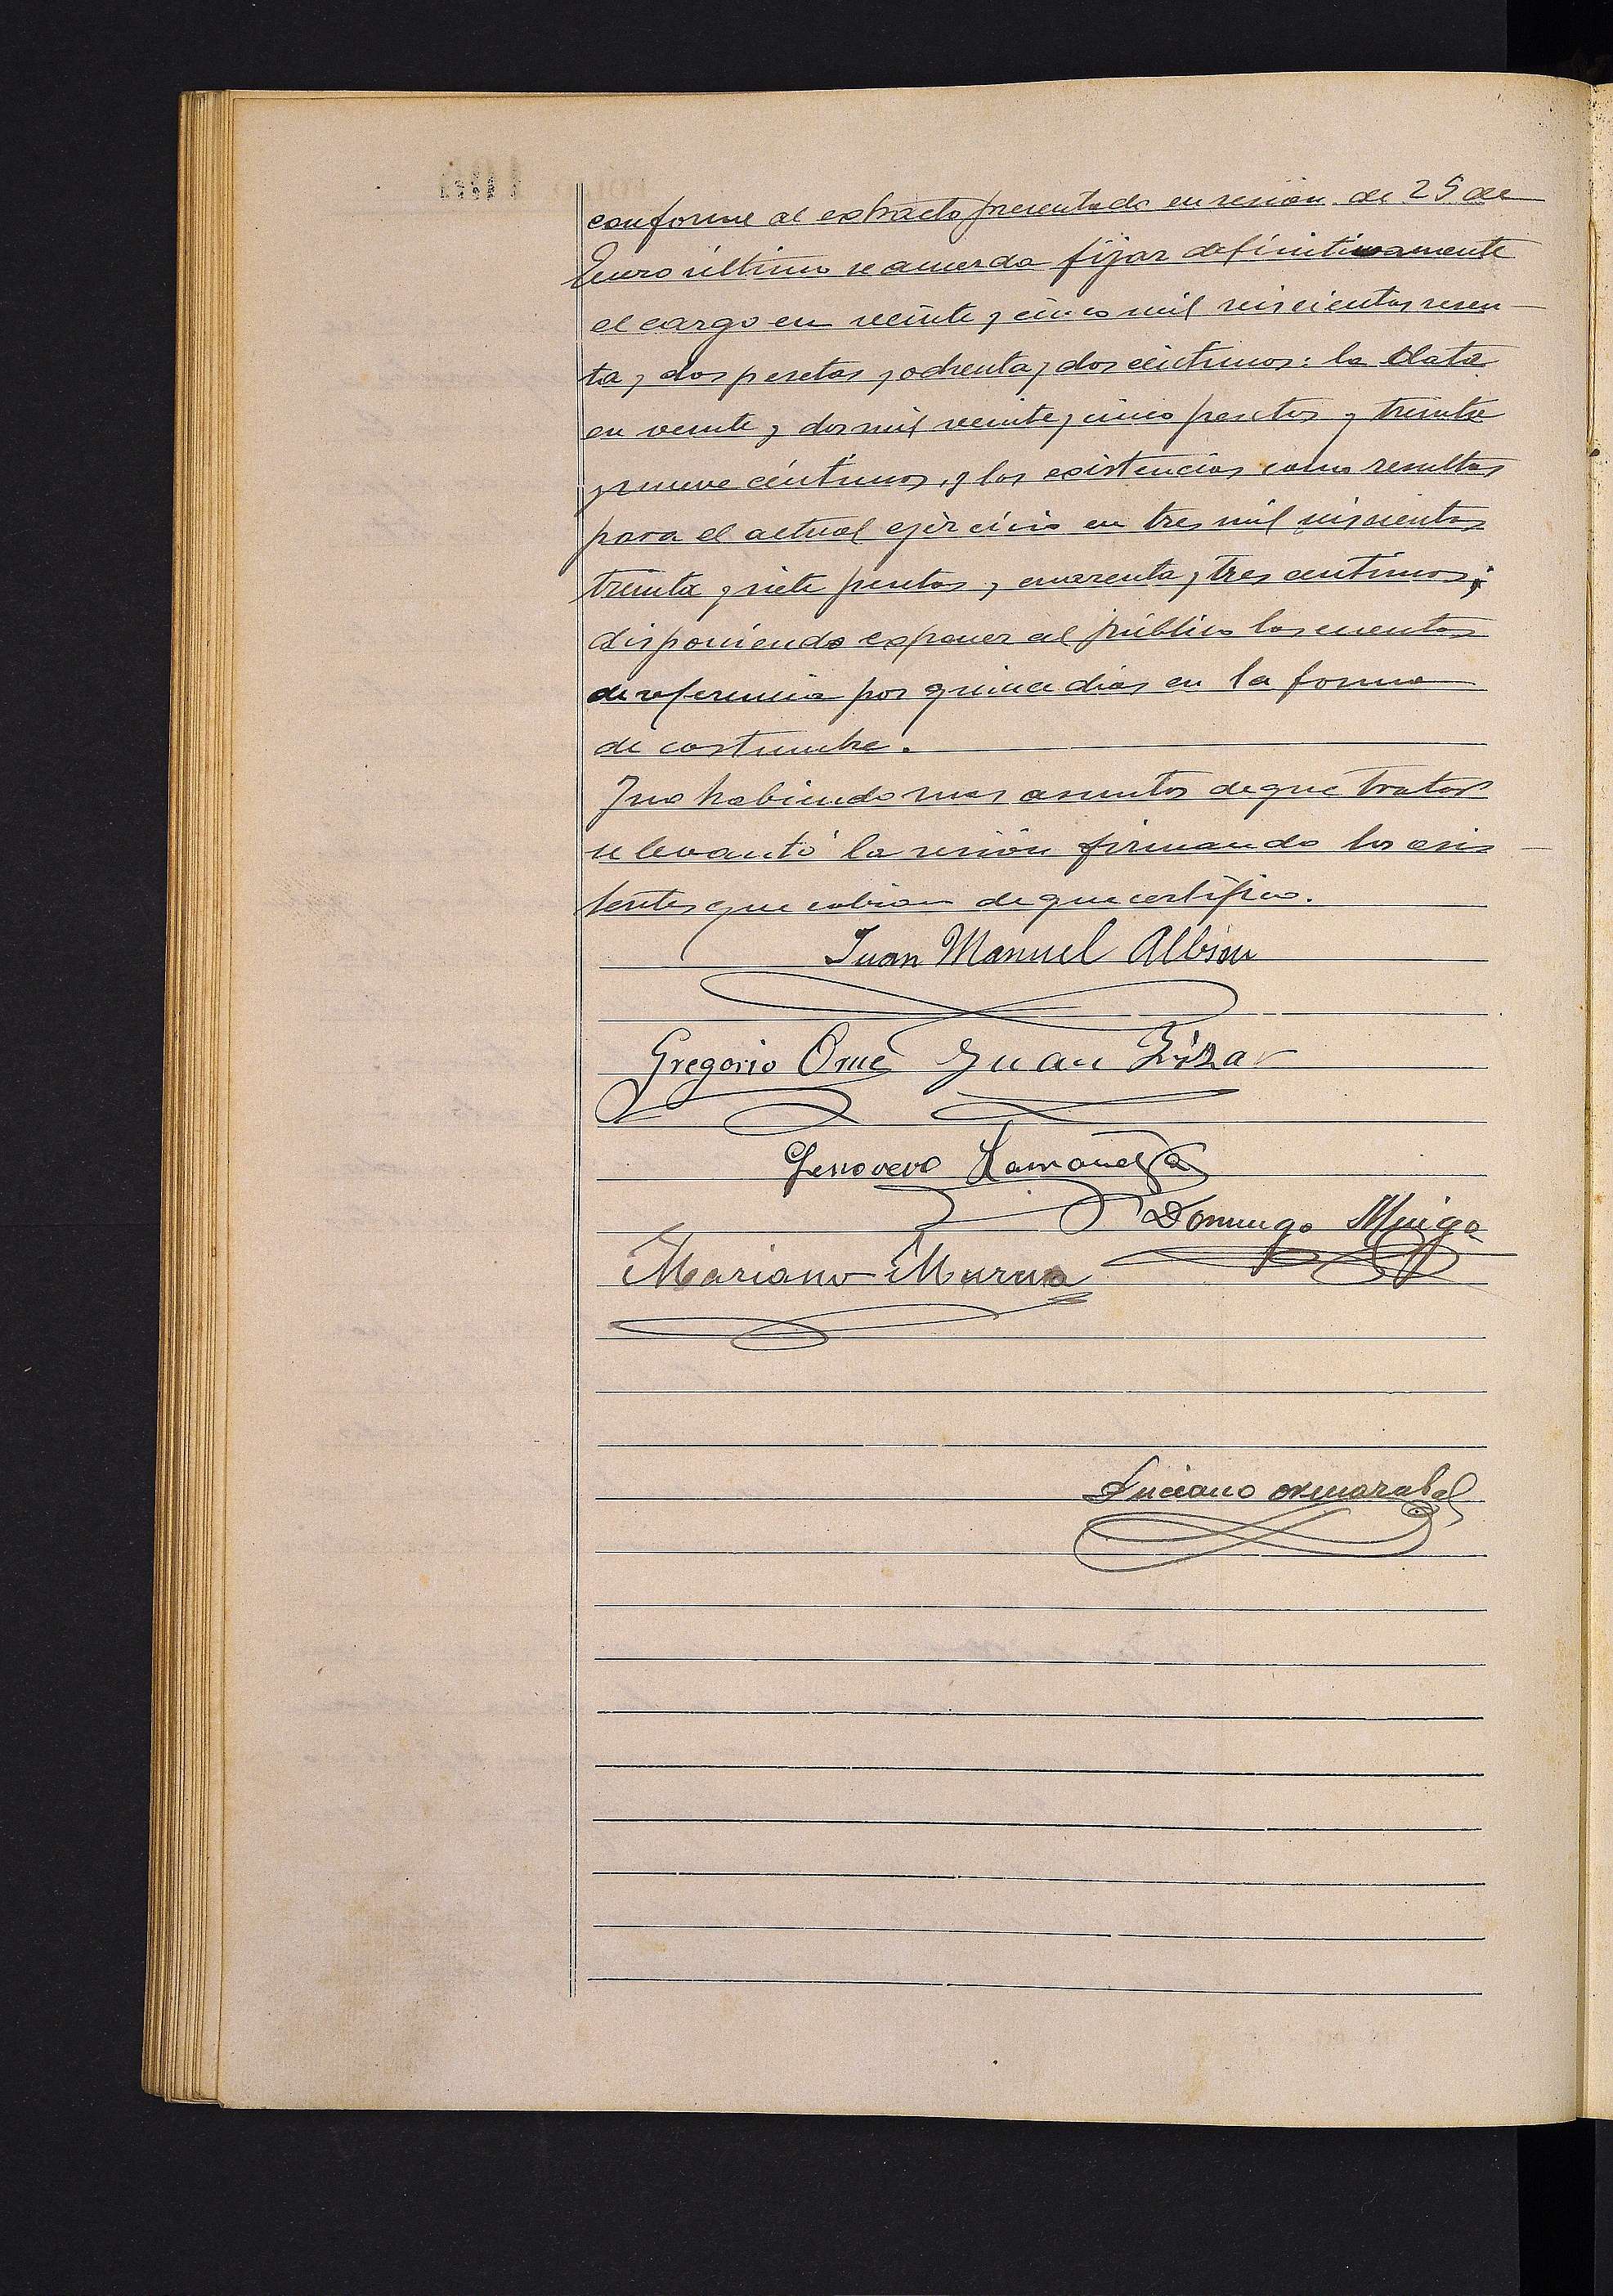 conforme al extracto presentado en sesion de 25 de
Enero último se acuerda fijar definitivamente
el cargo en veinte y cinco mil seiscientas sesen-
ta y dos pesetas y ochenta y dos céntimos: la Data
en veinte y dos mil veinte y cinco pesetas y treinta
y nueve céntimos, y las existencias como resultas
para el actual ejercicio en tres mil seiscientas
treinta y siete pesetas y cuarenta y tres centimos;
disponiendo exponer al público las cuentas
de referencia por quince dias en la forma
de costumbre.
Y no habiendo mas asuntos de que tratar
se levantó la sesión firmando los asis-
tentes que sabian de que certifico.
Juan Manuel Albisu
Gregorio Orue Juan
Genovevo
Domingo
Mariano Murua
Luciano